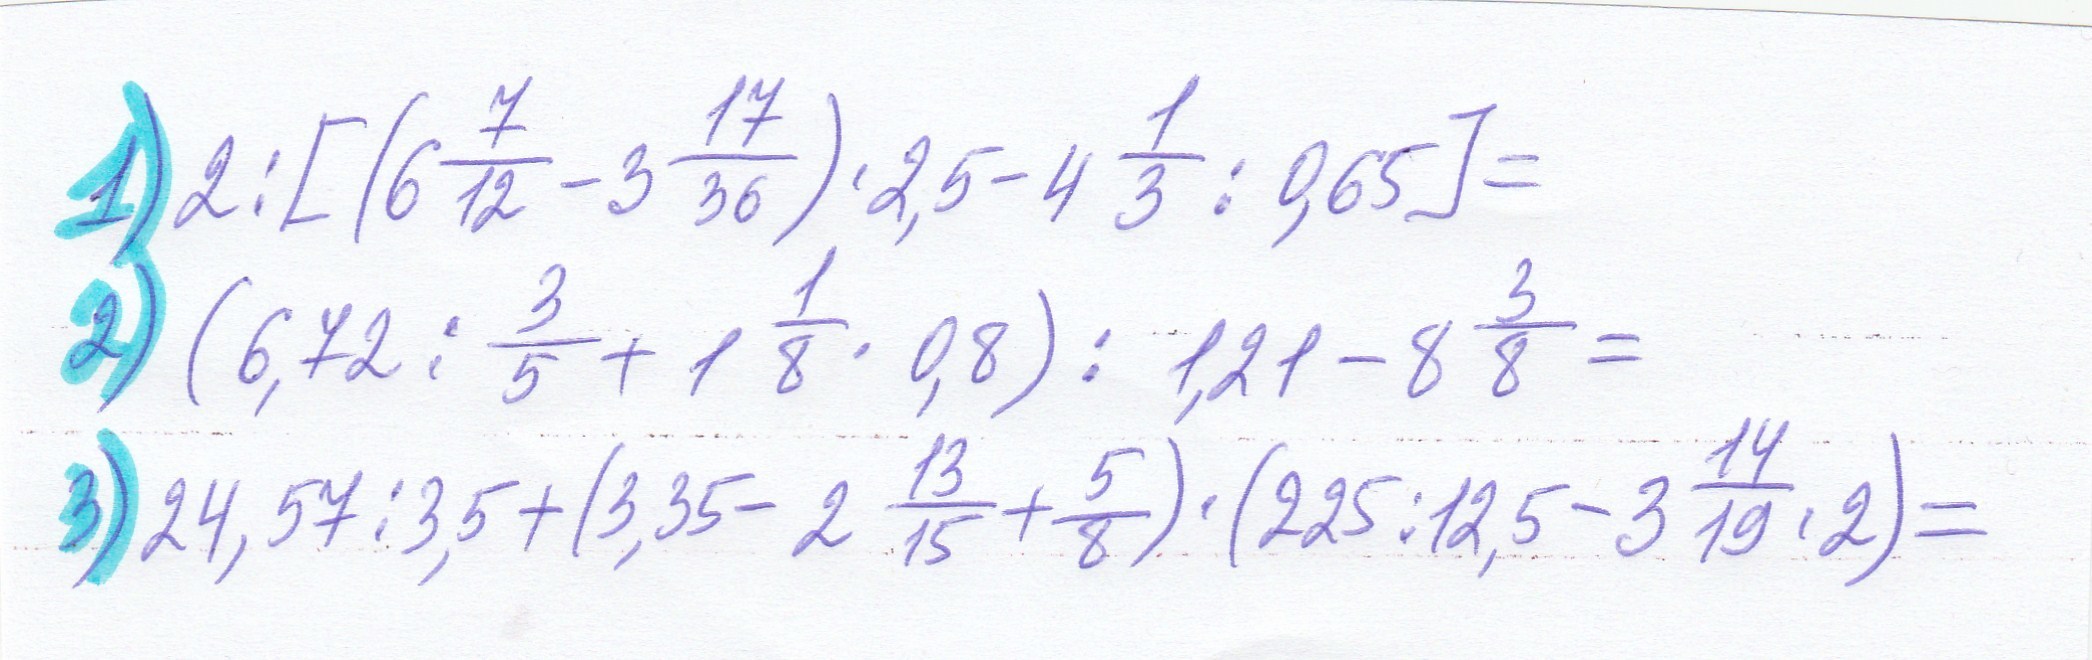 1) 2 : [(6 7/12 - 3 17/36) · 2,5 - 4 1/3 : 0,65] =
2) (6,72 : 3/5 + 1 1/8 · 0,8) : 1,21 - 8 3/8 =
3) 24,57 : 3,5 + (3,35 - 2 13/15 + 5/8) · (225 : 12,5 - 3 14/19 · 2) =